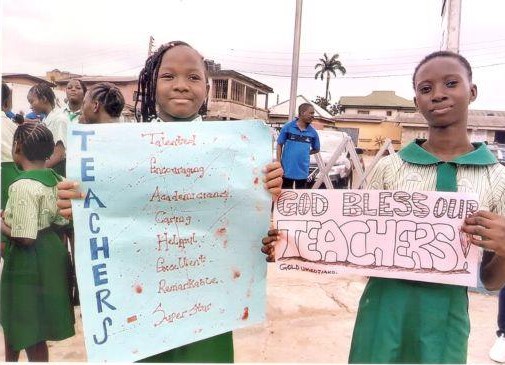 TEACHERS
Talented
Encouraging
Academic
Caring
Helpful
Excellent
Remarkable
Super Star
GOD BLESS OUR
TEACHERS!
GOLD